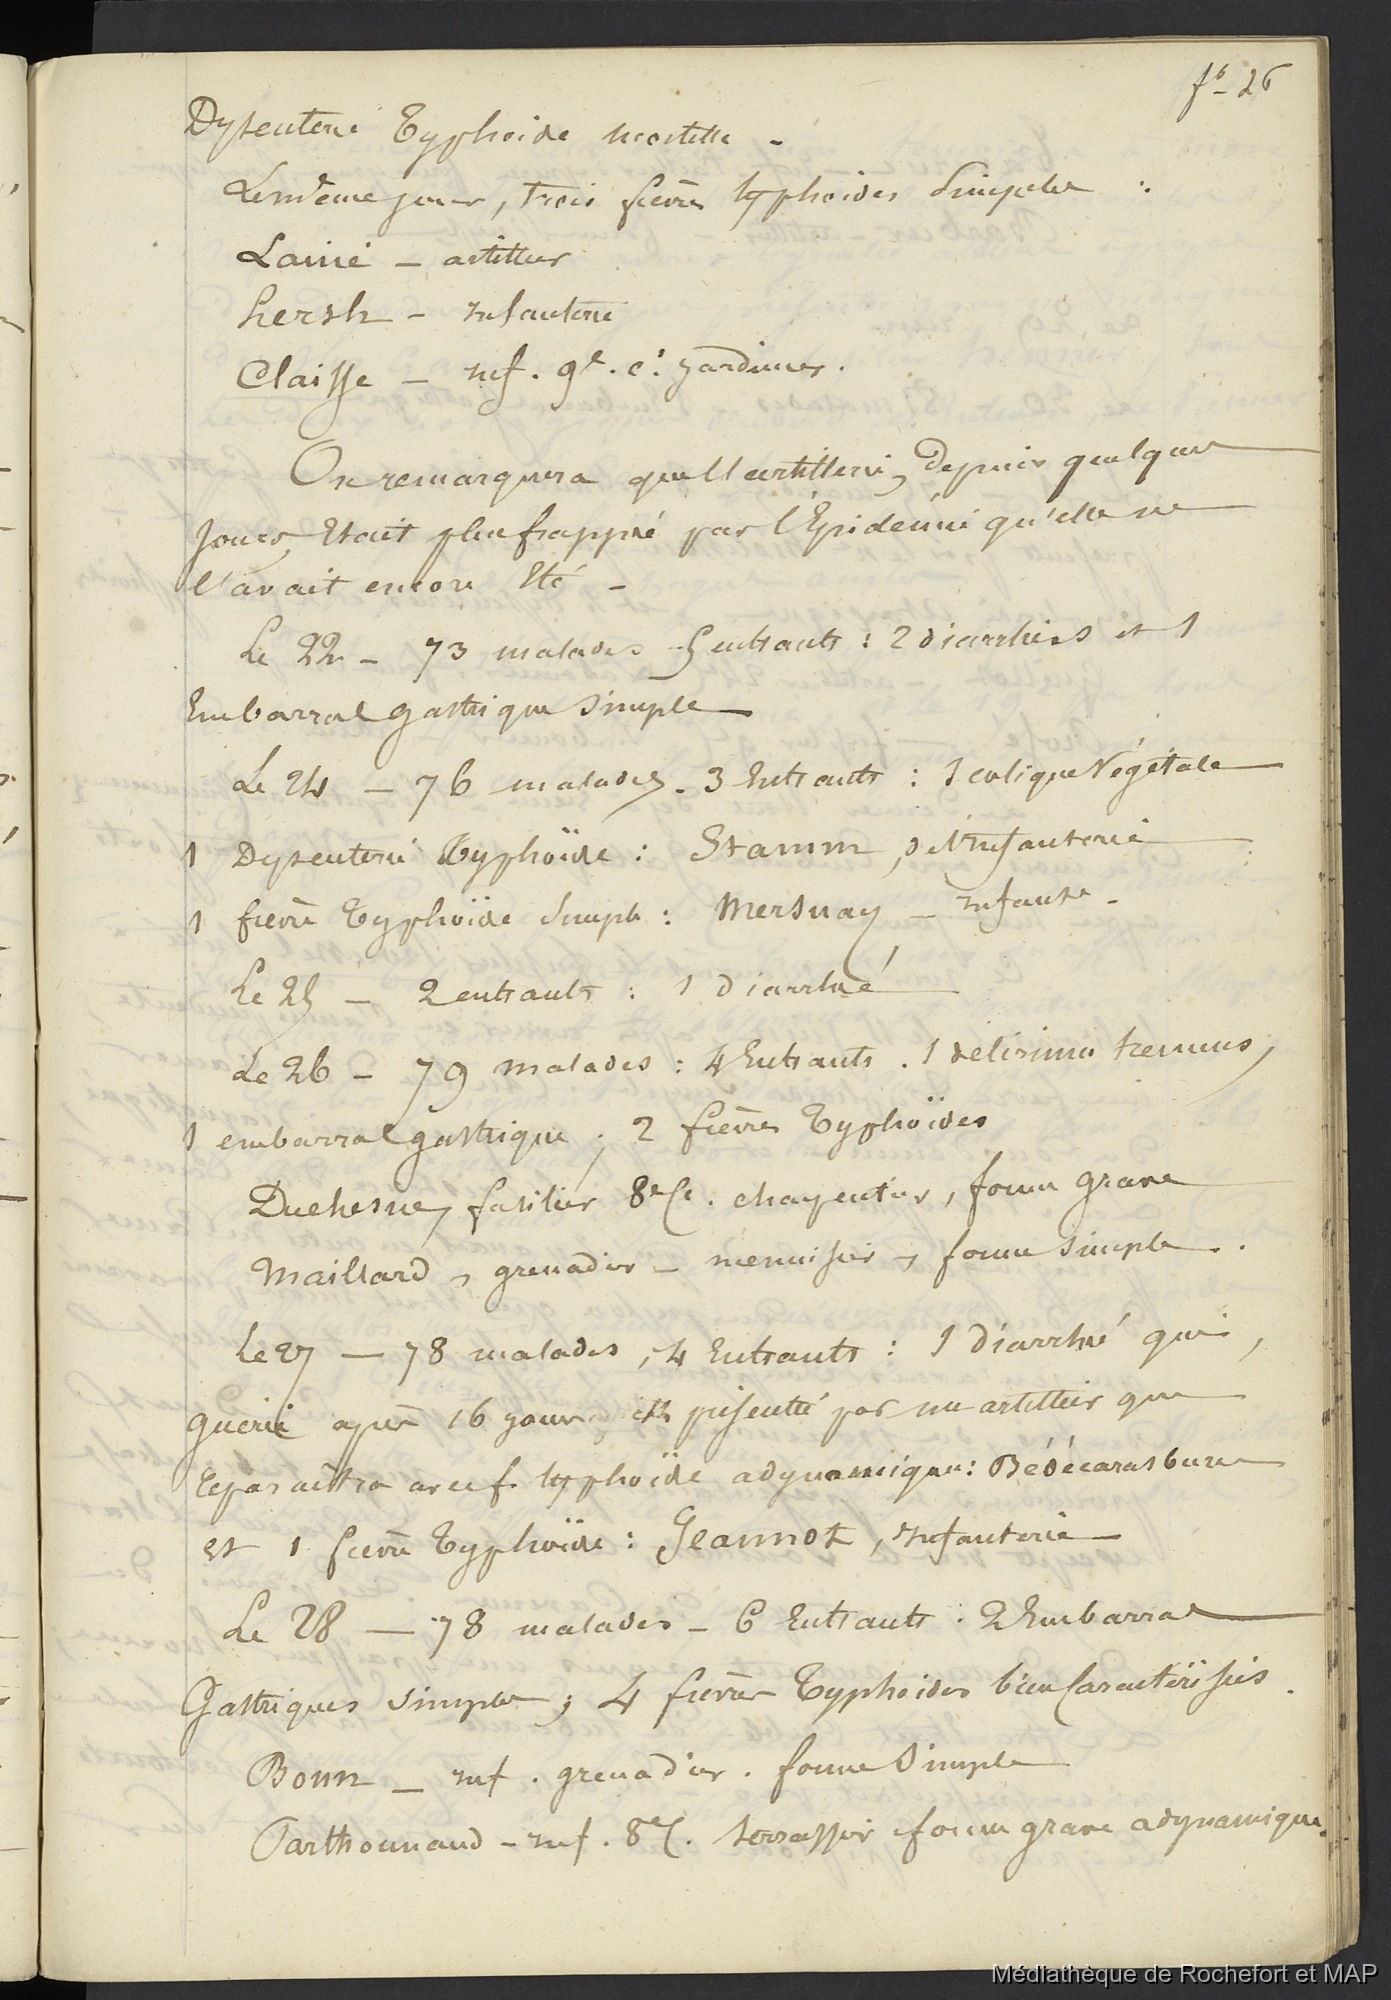 fo 26
Dysenterie Typhoide mortelle -
Le même jour, trois fièvres typhoides simples :
Lainé - artilleur
Hersh - infanterie
Claisse - inf. 9e. cie jardinier.
On remarquera que l'artillerie, depuis quelques
jours, était plus frappée par l'Épidémie qu'elle ne
l'avait encore été -
Le 22 - 73 malades - 3 entrants : 2 diarrhées et 1
Embarras gastrique simple
Le 24 - 76 malades. 3 Entrants : 1 colique végétale
1 Dysenterie Typhoïde : Stamm, de l'infanterie
1 fièvre Typhoïde simple : Mersuay - infante -
Le 25 - 2 entrants : 1 diarrhée
Le 26 - 79 malades : 4 Entrants. 1 delirium tremens,
1 embarras gastrique ; 2 fièvres Typhoïdes
Duchesne, fusilier 8e Cie. charpentier, forme grave
Maillard, grenadier - menuisier, forme simple.
Le 27 - 78 malades, 4 Entrants : 1 Diarrhée qui,
guérie après 16 jours, est présentée par un artilleur que
reparaîtra avec f. typhoïde adynamique : Bédécarasbure
et 1 fièvre Typhoïde : Jeannot, infanterie
Le 28 - 78 malades - 6 Entrants. 2 Embarras
Gastriques simples ; 4 fièvres Typhoides bien caractérisées.
Bonn - inf. grenadier. forme simple
Parthounaud - inf. 8e C. terrassier forme grave adynamique.
Médiathèque de Rochefort et MAP